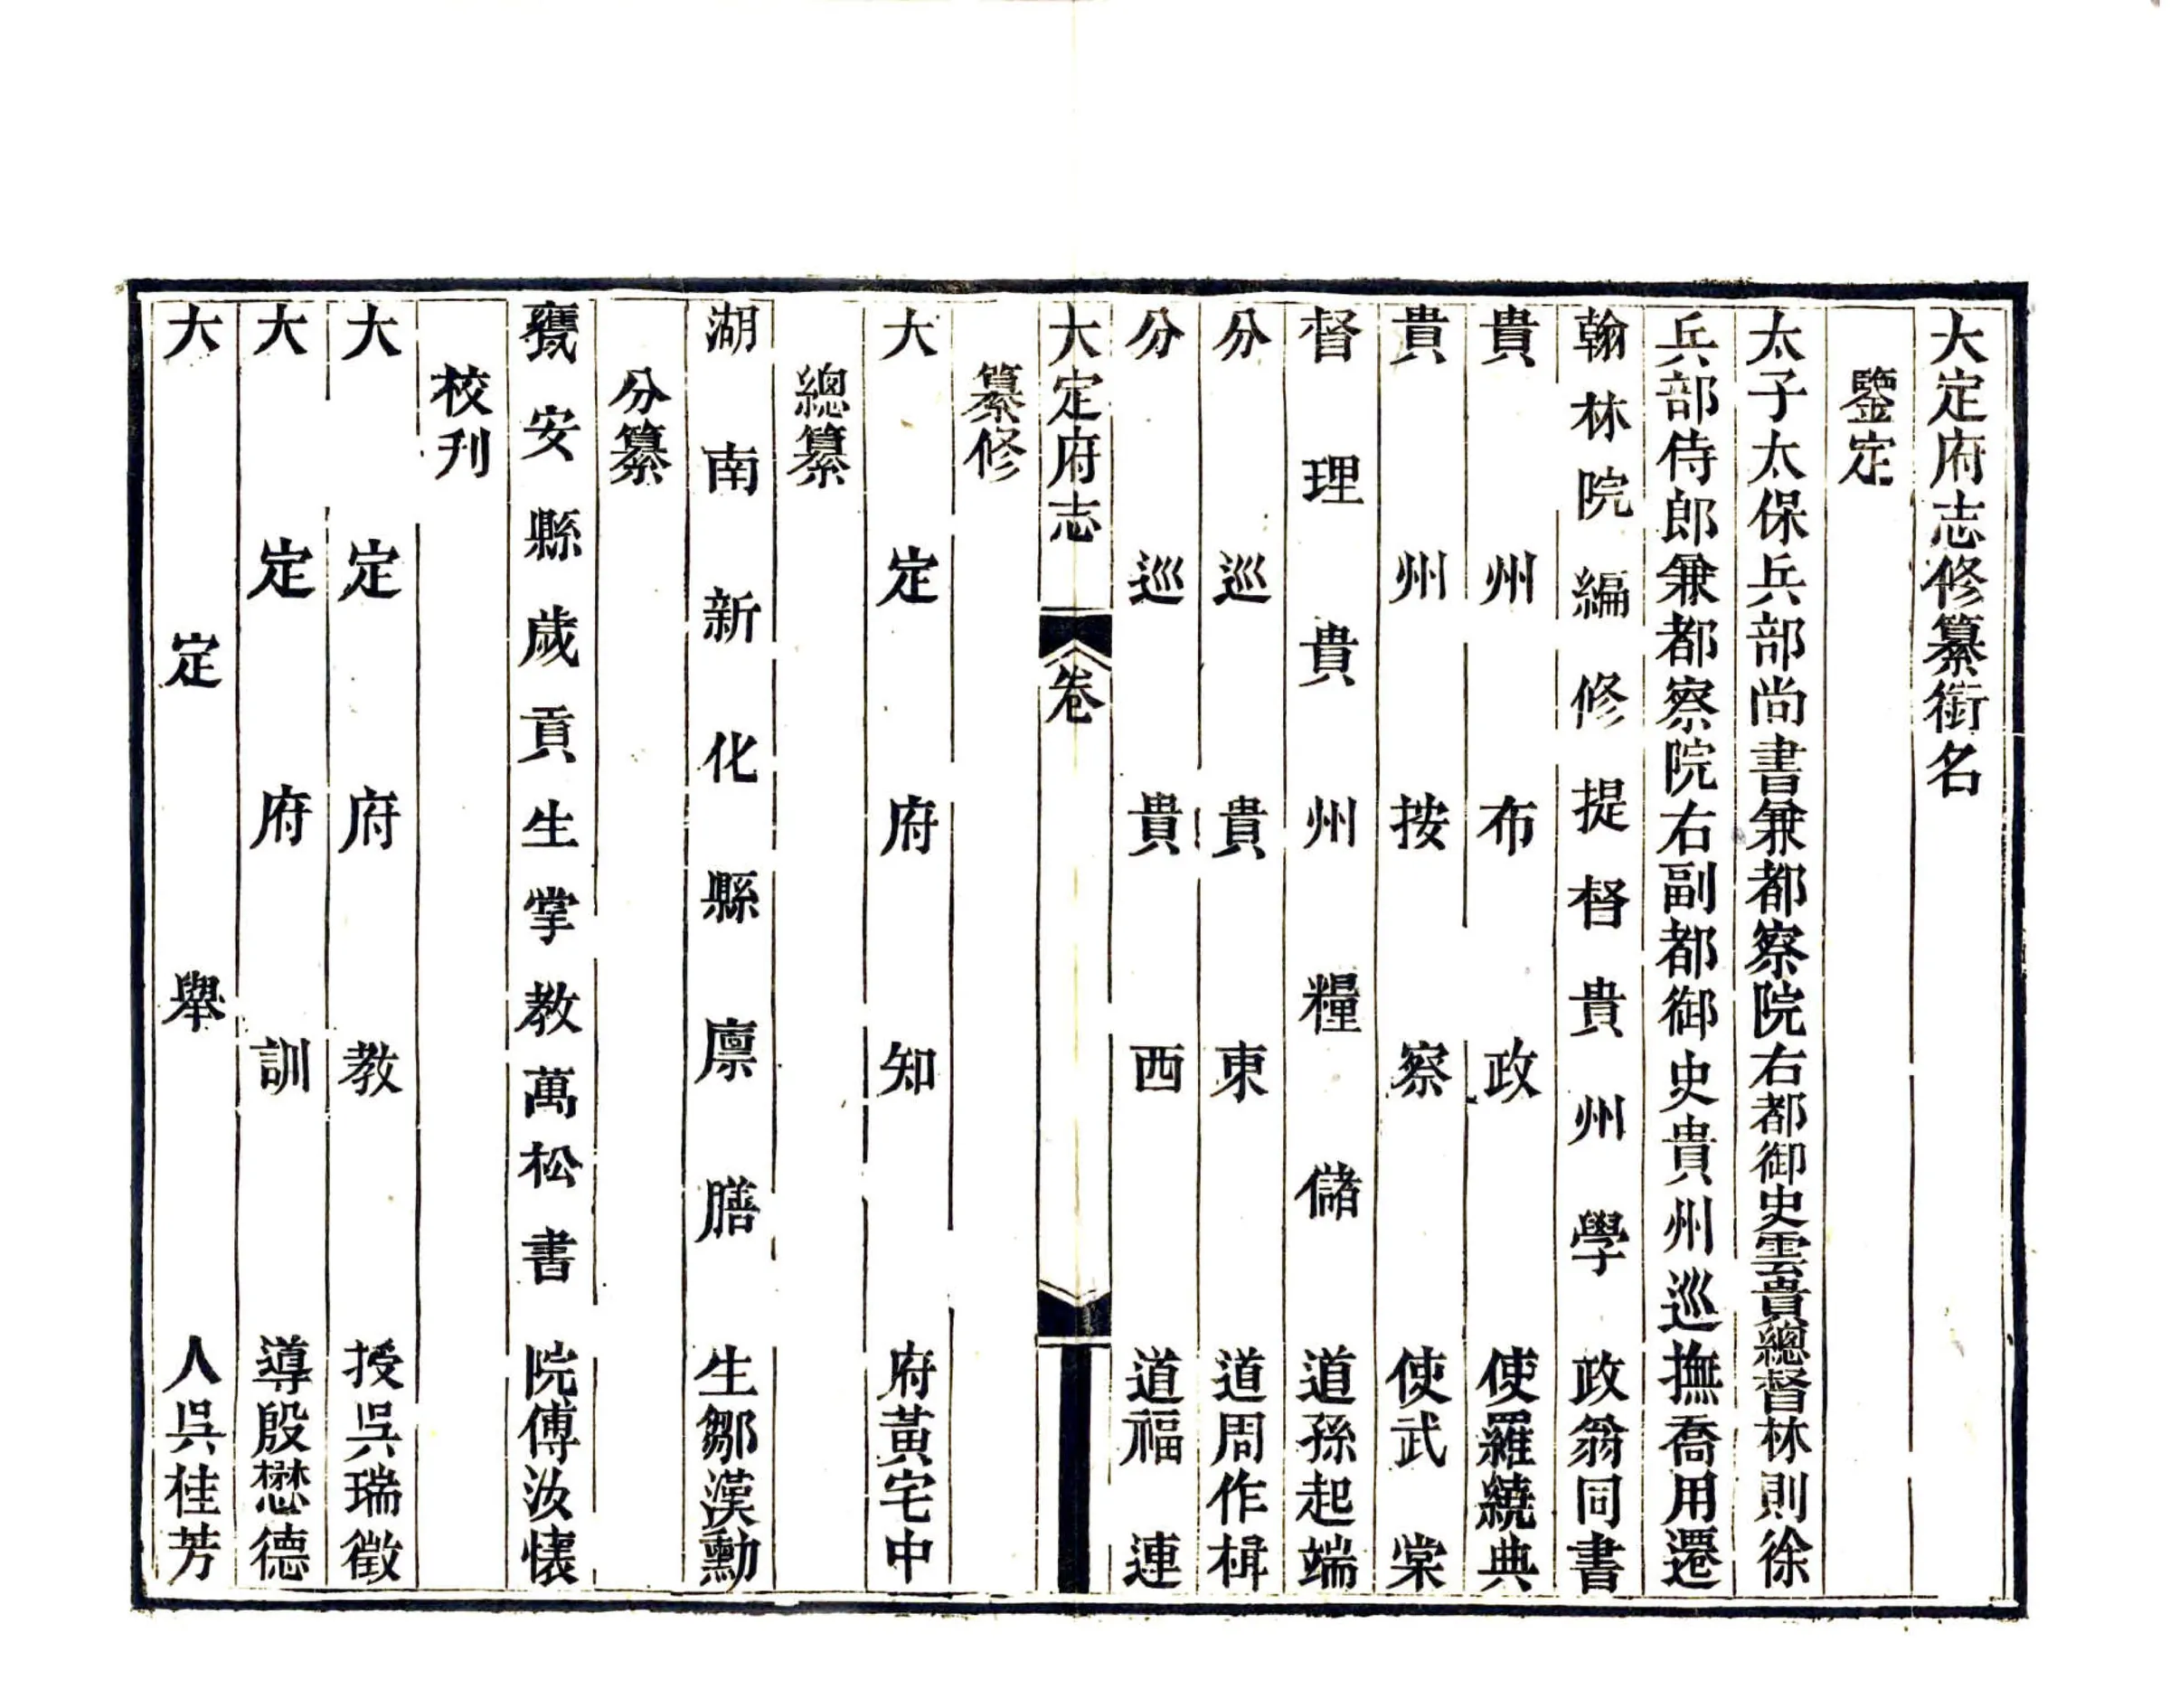 大定府志修纂銜名
鑒定
太子太保兵部尚書兼都察院右都御史雲貴總督林則徐
兵部侍郎兼都察院右副都御史貴州巡撫喬用遷
翰林院編修提督貴州學政翁同書
貴州布政使羅繞典
貴州按察使武棠
督理貴州糧儲道孫起端
分巡貴東道周作楫
分巡貴西道福連
大定府志 卷
纂修
大定府知府黃宅中
總纂
湖南新化縣廩膳生鄒漢勳
分纂
甕安縣歲貢生掌教萬松書院傅汝懷
校刋
大定府教授吳瑞徵
大定府訓導殷懋德
大定舉人吳佳芳